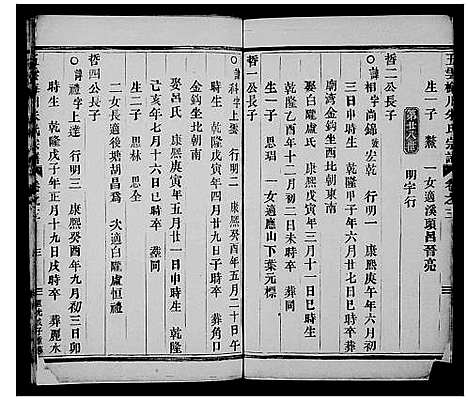 五雲梅川朱氏宗譜 卷之三
生一子 燾 一女適溪頭呂晉亮
第廿八世 明字行
哲二公長子
相 字尚錦 宏乾 行明一 康熙庚午年六月初
三日午時生 乾隆甲子年六月廿七日巳時卒
娶白隴盧氏 康熙丁丑年三月十一日巳時生
乾隆乙酉年十二月初二日未時卒 葬
廟灣金鈎坐北朝東南
生一子 思瑞 一女適應山下葉元標
哲一公長子
科 字上盤 行明二 康熙癸酉年五月二十日午
時生 乾隆戊寅年四月廿九日子時卒 葬角口
金鈎坐北朝南
娶呂氏 康熙庚寅年五月廿一日申時生 乾隆
己亥年七月十六日巳時卒 葬同
二子 思林 思全
二女長適後塘胡昌爲 次適白隴盧恒禮
哲四公長子
禮 字上達 行明三 康熙癸酉年九月初三日卯
時生 乾隆戊子年正月十九日戌時卒 葬麗水